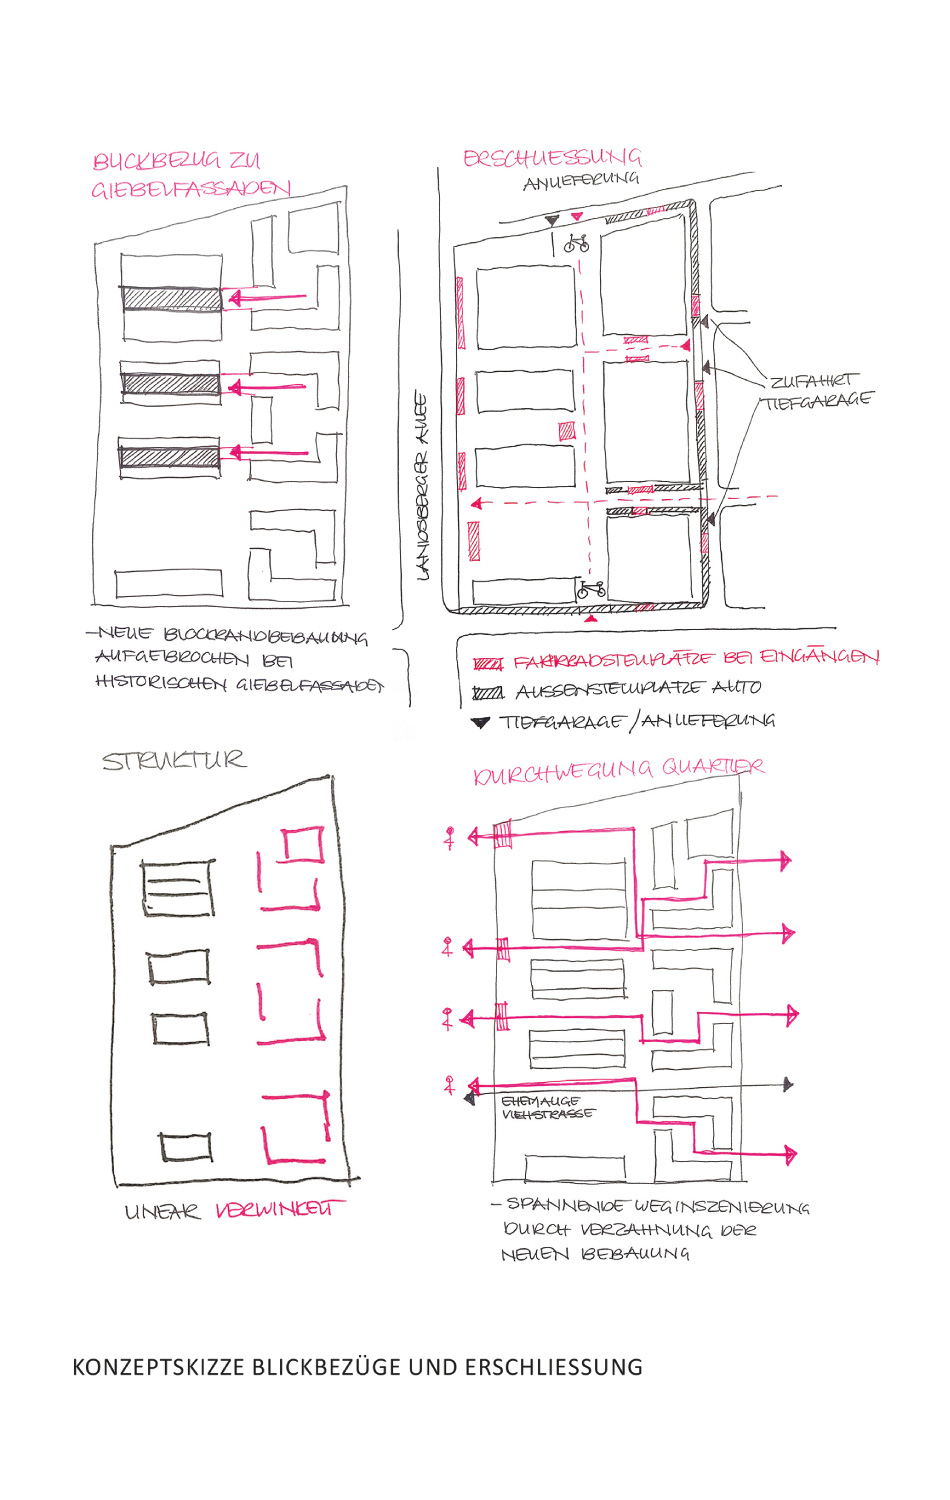 BLICKBEZUG ZU
GIEBELFASSADEN
ERSCHLIESSUNG
ANLIEFERUNG
LANDSBERGER ALLEE
ZUFAHRT
TIEFGARAGE
– NEUE BLOCKRANDBEBAUUNG
AUFGEBROCHEN BEI
HISTORISCHEN GIEBELFASSADEN
FAHRRADSTELLPLÄTZE BEI EINGÄNGEN
AUSSENSTELLPLÄTZE AUTO
TIEFGARAGE / ANLIEFERUNG
STRUKTUR
LINEAR VERWINKELT
DURCHWEGUNG QUARTIER
EHEMALIGE
VIEHSTRASSE
– SPANNENDE WEGINSZENIERUNG
DURCH VERZAHNUNG DER
NEUEN BEBAUUNG
KONZEPTSKIZZE BLICKBEZÜGE UND ERSCHLIESSUNG